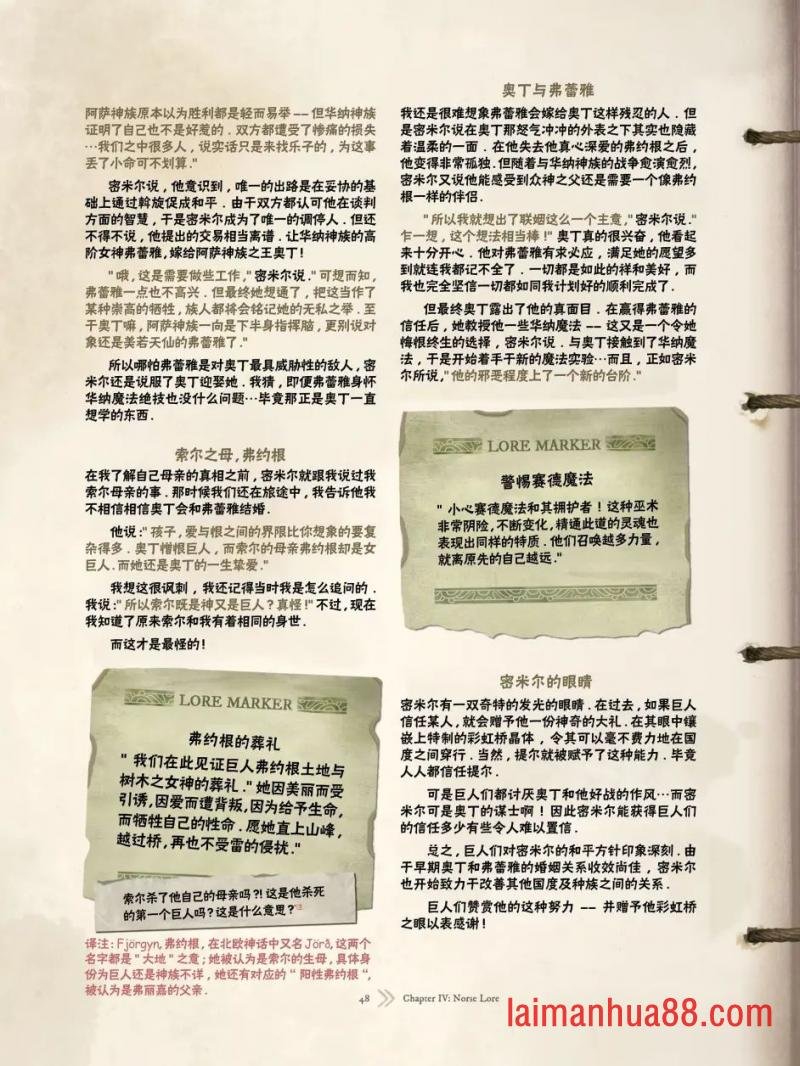 阿萨神族原本以为胜利都是轻而易举 -- 但华纳神族
证明了自己也不是好惹的．双方都遭受了惨痛的损失
…我们之中很多人，说实话只是来找乐子的，为这事
丢了小命可不划算．"
密米尔说，他意识到，唯一的出路是在妥协的基
础上通过斡旋促成和平．由于双方都认可他在谈判
方面的智慧，于是密米尔成为了唯一的调停人．但还
不得不说，他提出的交易相当离谱．让华纳神族的高
阶女神弗蕾雅,嫁给阿萨神族之王奥丁！
"哦，这是需要做些工作,"密米尔说."可想而知，
弗蕾雅一点也不高兴．但最终她想通了，把这当作了
某种崇高的牺牲，族人都将会铭记她的无私之举．至
于奥丁嘛，阿萨神族一向是下半身指挥脑，更别说对
象还是美若天仙的弗蕾雅了."
所以哪怕弗蕾雅是对奥丁最具威胁性的敌人，密
米尔还是说服了奥丁迎娶她．我猜，即便弗蕾雅身怀
华纳魔法绝技也没什么问题…毕竟那正是奥丁一直
想学的东西．
索尔之母,弗约根
在我了解自己母亲的真相之前，密米尔就跟我说过我
索尔母亲的事．那时候我们还在旅途中，我告诉他我
不相信相信奥丁会和弗蕾雅结婚．
他说:"孩子，爱与恨之间的界限比你想象的要复
杂得多．奥丁憎恨巨人，而索尔的母亲弗约根却是女
巨人.而她还是奥丁的一生挚爱."
我想这很讽刺，我还记得当时我是怎么追问的．
我说:"所以索尔既是神又是巨人？真怪!"不过，现在
我知道了原来索尔和我有着相同的身世．
而这才是最怪的!
LORE MARKER
弗约根的葬礼
"我们在此见证巨人弗约根土地与
树木之女神的葬礼．"她因美丽而受
引诱,因爱而遭背叛,因为给予生命,
而牺牲自己的性命．愿她直上山峰,
越过桥,再也不受雷的侵扰."
索尔杀了他自己的母亲吗?!这是他杀死
的第一个巨人吗？这是什么意思？
译注：Fjörgyn,弗约根，在北欧神话中又名Jörð,这两个
名字都是"大地"之意；她被认为是索尔的生母，具体身
份为巨人还是神族不详，她还有对应的"阳性弗约根",
被认为是弗丽嘉的父亲．
奥丁与弗蕾雅
我还是很难想象弗蕾雅会嫁给奥丁这样残忍的人．但
是密米尔说在奥丁那怒气冲冲的外表之下其实也隐藏
着温柔的一面．在他失去他真心深爱的弗约根之后，
他变得非常孤独.但随着与华纳神族的战争愈演愈烈，
密米尔又说他能感受到众神之父还是需要一个像弗约
根一样的伴侣．
"所以我就想出了联姻这么一个主意,"密米尔说."
乍一想，这个想法相当棒！"奥丁真的很兴奋，他看起
来十分开心．他对弗蕾雅有求必应，满足她的愿望多
到就连我都记不全了．一切都是如此的祥和美好，而
我也完全坚信一切都如同我计划好的顺利完成了．
但最终奥丁露出了他的真面目．在赢得弗蕾雅的
信任后，她教授他一些华纳魔法 -- 这又是一个令她
悔恨终生的选择，密米尔说．与奥丁接触到了华纳魔
法，于是开始着手干新的魔法实验…而且，正如密米
尔所说,"他的邪恶程度上了一个新的台阶."
LORE MARKER
警惕赛德魔法
"小心赛德魔法和其拥护者！这种巫术
非常阴险,不断变化,精通此道的灵魂也
表现出同样的特质．他们召唤越多力量，
就离原先的自己越远."
密米尔的眼睛
密米尔有一双奇特的发光的眼睛．在过去，如果巨人
信任某人，就会赠予他一份神奇的大礼．在其眼中镶
嵌上特制的彩虹桥晶体，令其可以毫不费力地在国
度之间穿行．当然，提尔就被赋予了这种能力．毕竟
人人都信任提尔．
可是巨人们都讨厌奥丁和他好战的作风…而密
米尔可是奥丁的谋士啊！因此密米尔能获得巨人们
的信任多少有些令人难以置信．
总之，巨人们对密米尔的和平方针印象深刻．由
于早期奥丁和弗蕾雅的婚姻关系收效尚佳，密米尔
也开始致力于改善其他国度及种族之间的关系．
巨人们赞赏他的这种努力 -- 并赠予他彩虹桥
之眼以表感谢！
48 Chapter IV: Norse Lore
laimanhua88.com